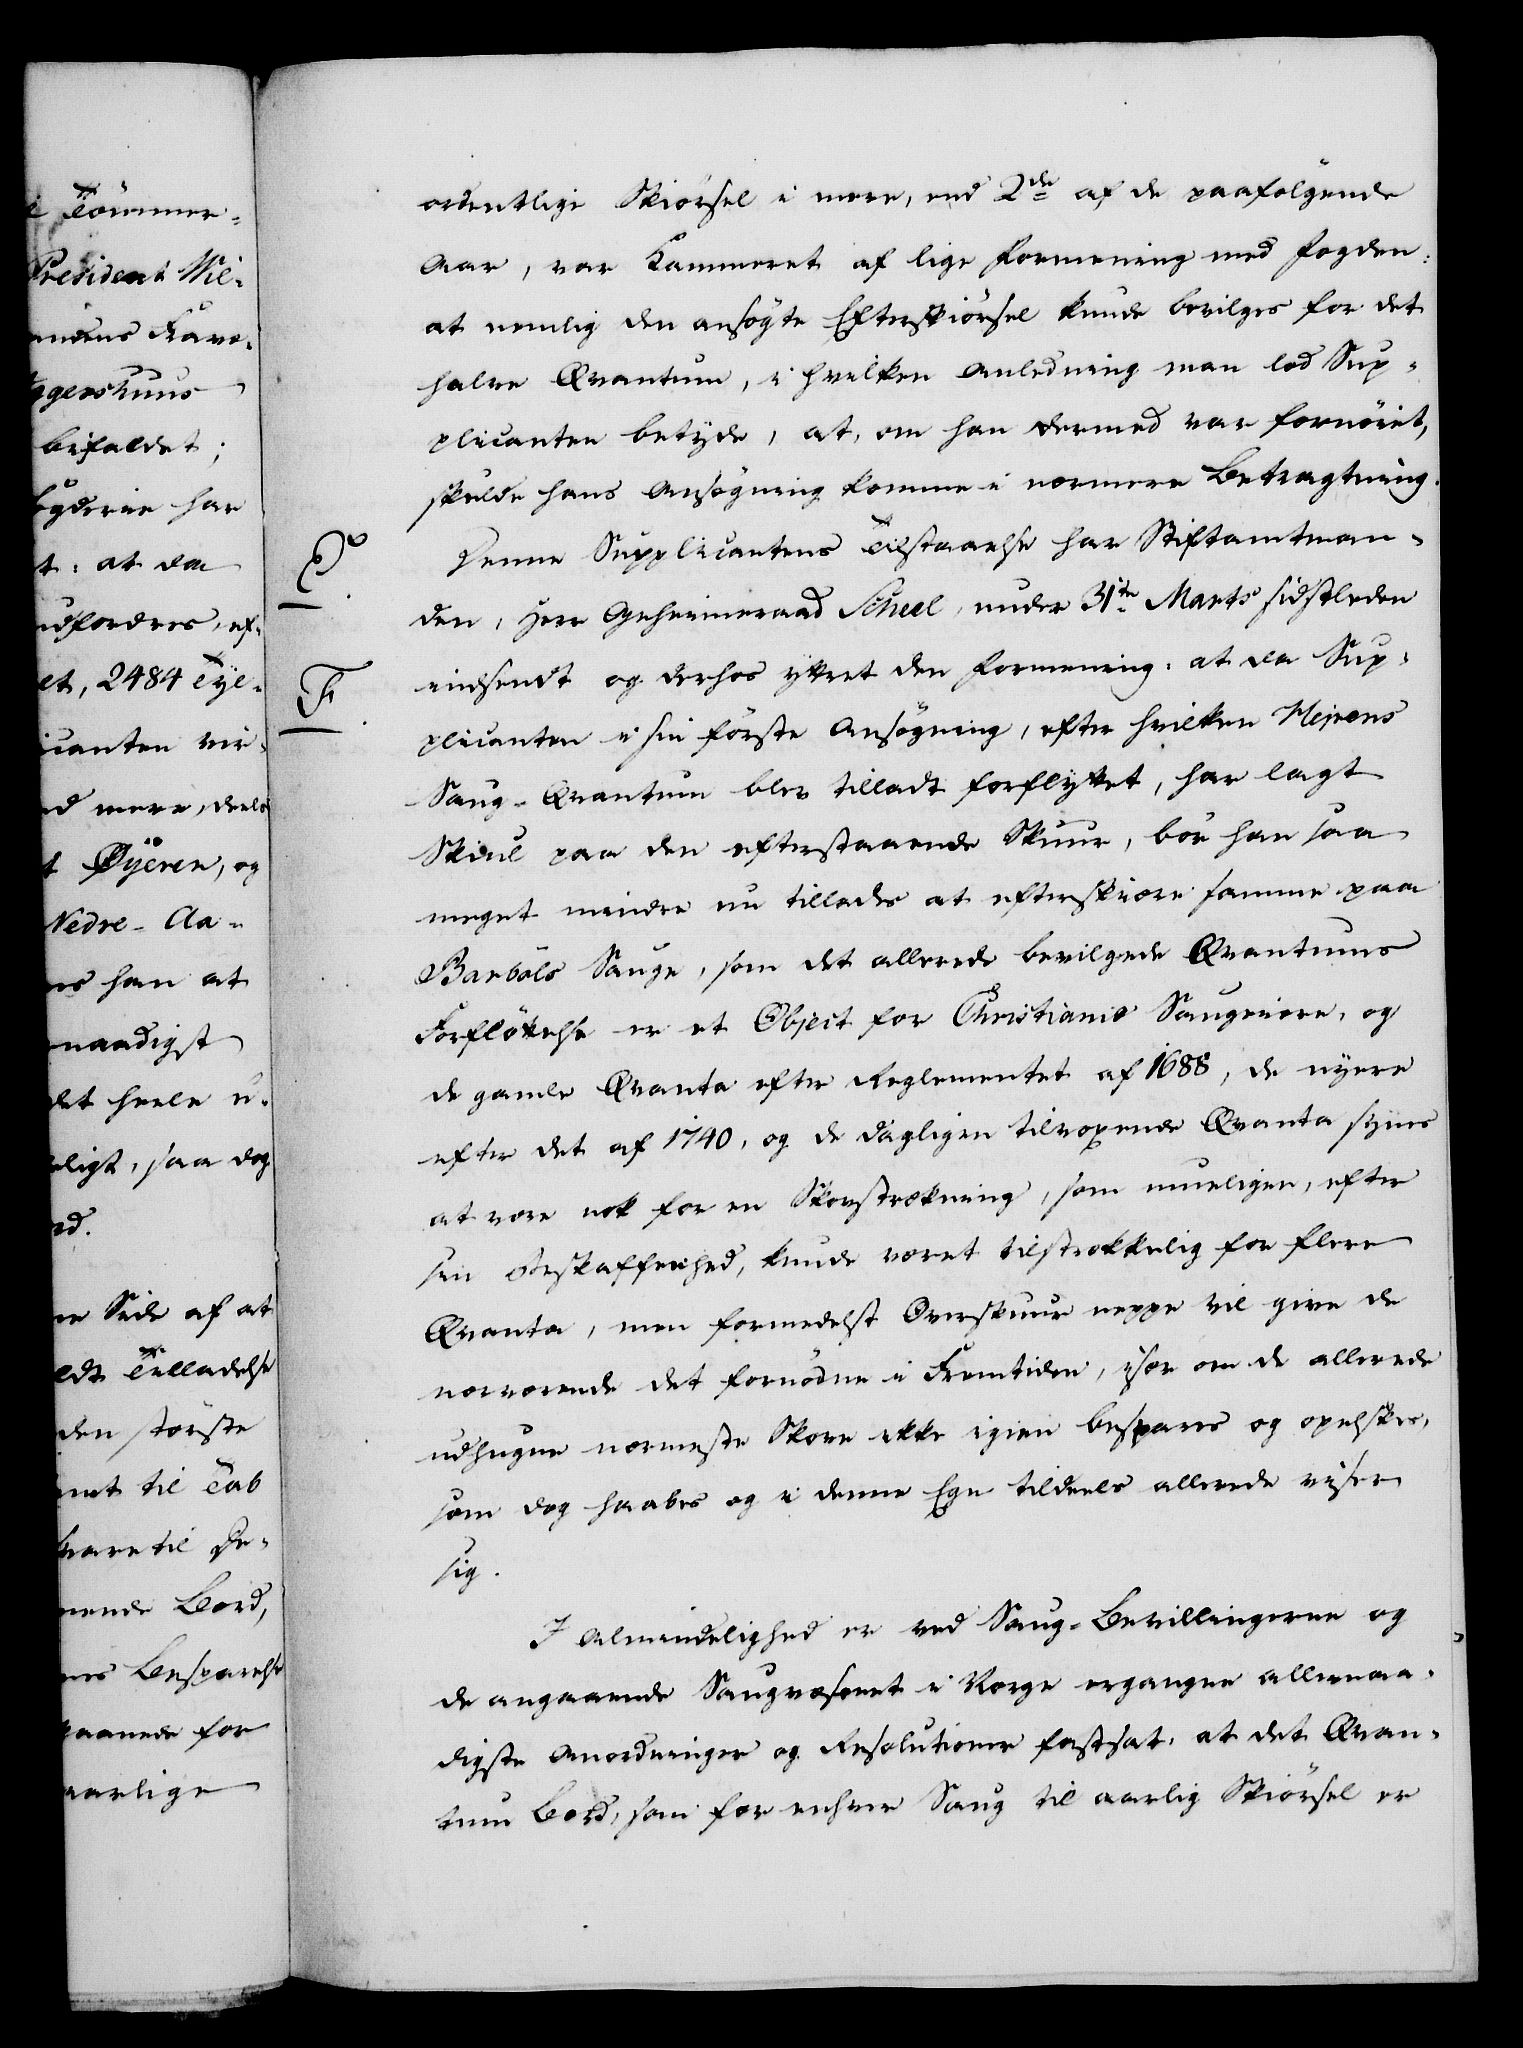 Tömmer-
President Wil-
Kave-
ggershuus
bifaldet;
byderne har
t: at da
udfordres, ef-
et, 2484 Tyl-
icanten vir-
d mere, deels
t Öyeren, og
Nedre-Aa-
es han at
naadigst
det heele u-
eligt, saa dog
rd.
ne Side af at
ldt Tilladelse
den störste
mt til Tab
vare til De-
nende Bord,
nes Besparelse
aanede for
aarlige
ordentlige Skiörsel i mere, end 2de af de paafölgende
Aar, var Kammeret af lige Formening med Fogden:
at nemlig den ansögte Efterskiörsel kunde bevilges for det
halve Qvantum, i hvilken Anledning man lod Sup-
plicanten betyde, at, om han dermed var fornöiet,
skulde hans Ansögning komme i nærmere Betragtning.
E.
Denne Supplicantens Tilstaaelse har Stiftamtman-
den, Herr Geheimeraad Scheel, under 31te Marts sidstleden
F.
indsendt og derhos yttret den Formening: at da Sup-
plicanten i sin förste Ansögning, efter hvilken Mejrens
Saug-Qvantum blev tilladt forflyttet, har lagt
Skiul paa den efterstaaende Skuur, bör han saa
meget mindre nu tillades at efterskiære samme paa
Barböls Sauge, som det allerede bevilgede Qvantums
Forflöttelse er et Object for Christianiæ Saugeiere, og
de gamle Qvanta efter Reglementet af 1688, de nyere
efter det af 1740, og de dagligen tilvoxende Qvanta synes
at være nok for en Skovstrækning, som mueligen, efter
sin Beskaffenhed, kunde været tilstrækkelig for flere
Qvanta, men formedelst Overskuur neppe vil give de
nærværende det fornödne i Fremtiden, især om de allerede
udhugne nærmeste Skove ikke igien bespares og opelskes,
som dog haabes og i denne Egn tildeels allerede viser
sig.
I Almindelighed er ved Saug-Bevillingerne og
de angaaende Saugvæsenet i Norge ergangne allernaa-
digste Anordninger og Resolutioner fastsat, at det Qvan-
tum Bord, som for enhver Saug til aarlig Skiörsel er